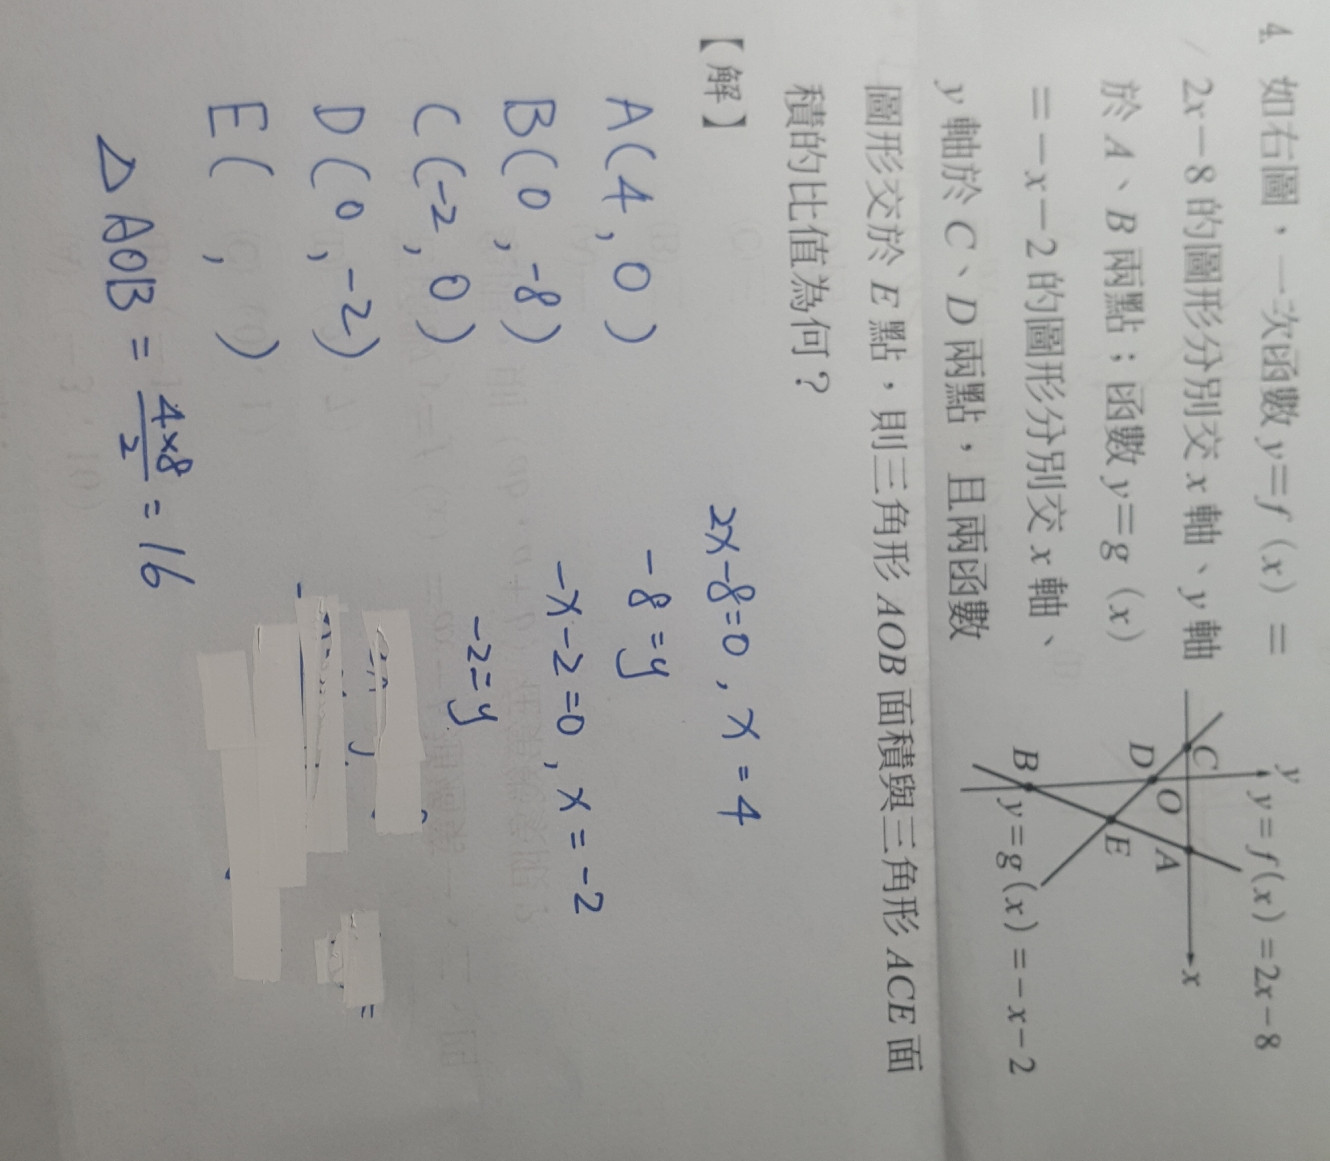 4. 如右圖，一次函數 y＝f（x）＝
2x－8 的圖形分別交 x 軸、y 軸
於 A、B 兩點；函數 y＝g（x）
＝－x－2 的圖形分別交 x 軸、
y 軸於 C、D 兩點，且兩函數
圖形交於 E 點，則三角形 AOB 面積與三角形 ACE 面
積的比值為何？
y
y＝f(x)＝2x－8
C
O
A
x
D
E
B
y＝g(x)＝－x－2
【解】
2x-8=0, x=4
A(4,0)
-8=y
B(0,-8)
-x-2=0, x=-2
C(-2,0)
-2=y
D(0,-2)
E( , )
△AOB = 4×8/2 = 16